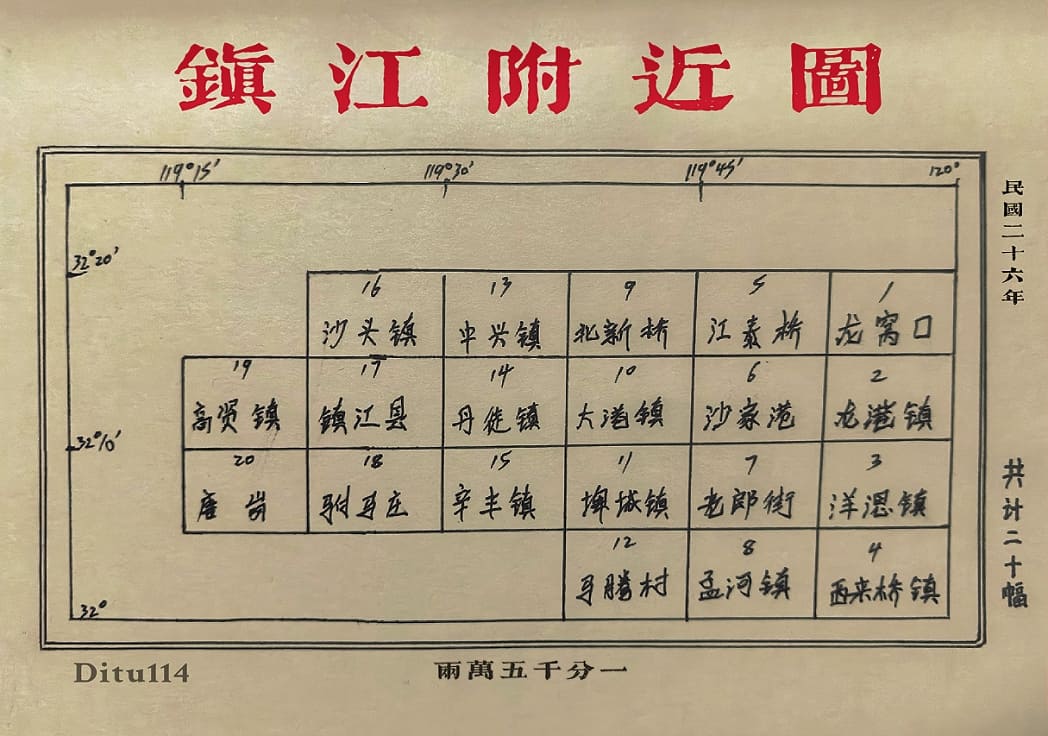 鎮江附近圖
119°15′ 119°30′ 119°45′ 120°
民國二十六年
32°20′
16 13 9 5 1
沙头镇 中兴镇 北新桥 江泰桥 龙窝口
19 17 14 10 6 2
高贤镇 镇江县 丹徒镇 大港镇 沙家港 龙港镇
32°10′
20 18 15 11 7 3
唐岗 驸马庄 辛丰镇 埤城镇 老郎街
12 8 4
马腾村 孟河镇 西来桥镇
32°
共计二十幅
兩萬五千分一
Ditu114